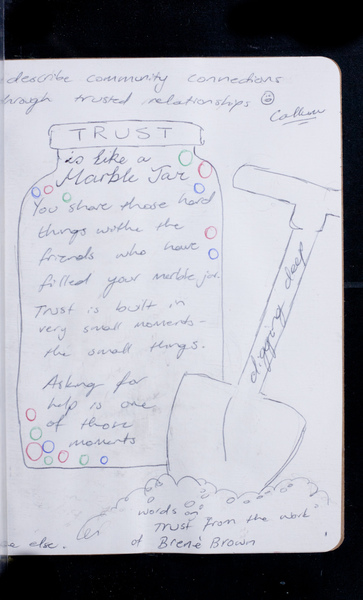 describe community connections
hrough trusted relationships
Callum
TRUST
is like a
Marble Jar
You share those hard
things withe the
friends who have
filled your marble jar.
Trust is built in
very small moments -
the small things.
Asking for
help is one
of those
moments
digging deep
words on
Trust from the work
of Brenè Brown
e else.